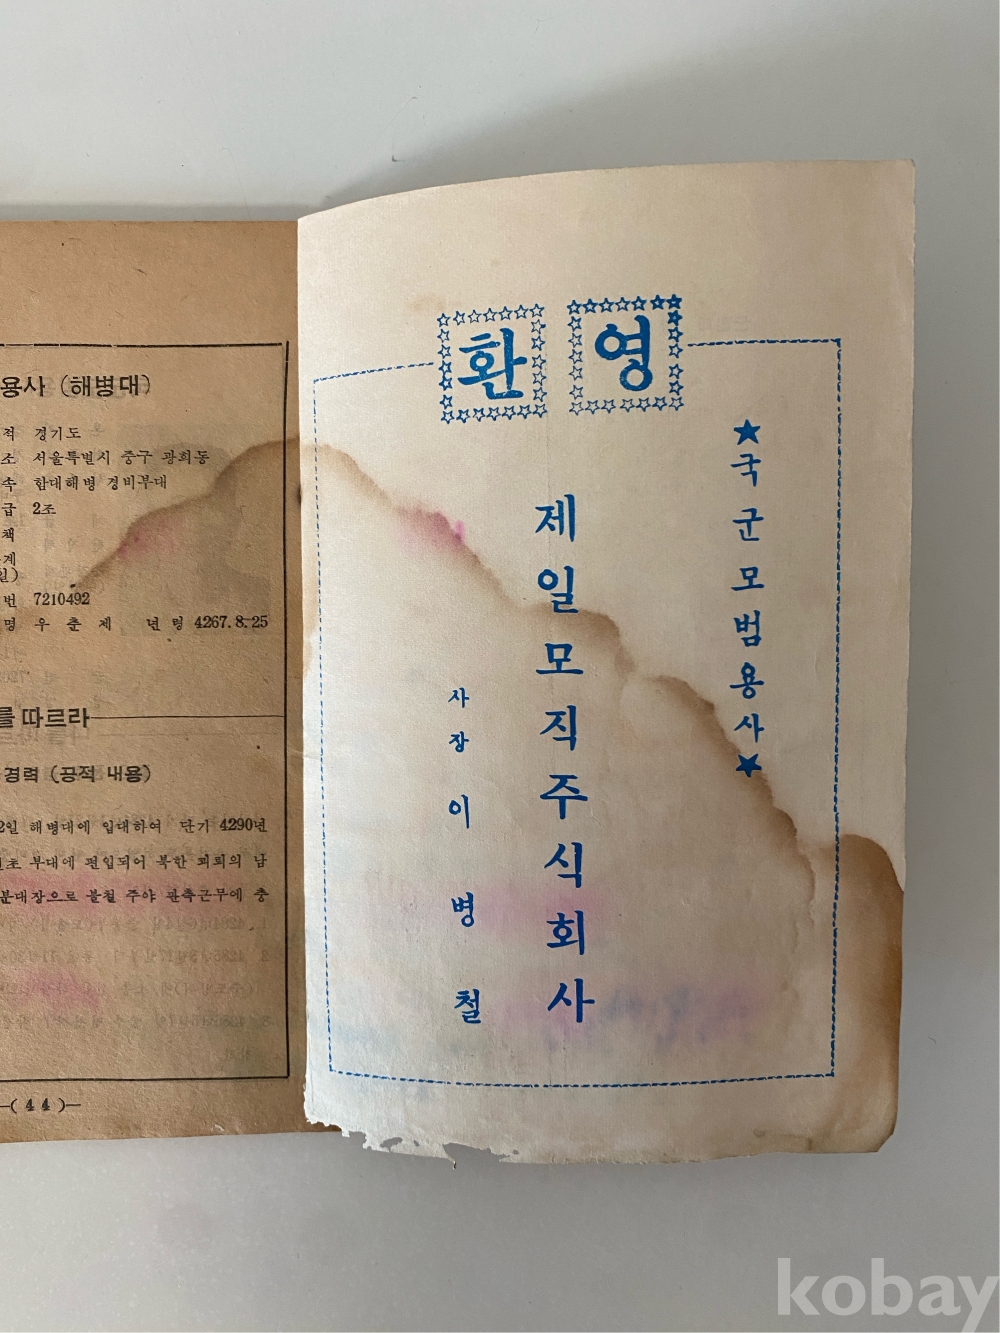 용사 (해병대)
적 경기도
소 서울특별시 중구 광희동
속 함대해병 경비부대
급 2조
책
계
일)
번 7210492
명 우 춘 제 년 령 4267.8.25
를 따르라
경력 (공적 내용)
2일 해병대에 입대하여 단기 4290년
초 부대에 편입되어 북한 괴뢰의 남
분대장으로 불철 주야 관측근무에 충
—( 44 )—
환 영
★국군모범용사★
제일모직주식회사
사장 이병철
kobay